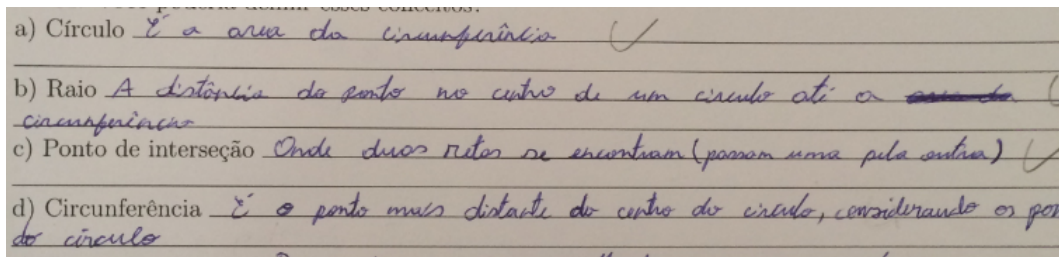 a) Círculo É a area da circunferência
b) Raio A distância do ponto no centro de um circulo até a
circunferência
c) Ponto de interseção Onde duas retas se encontram (passam uma pela outra)
d) Circunferência É o ponto mais distante do centro do circulo, considerando os
do circulo